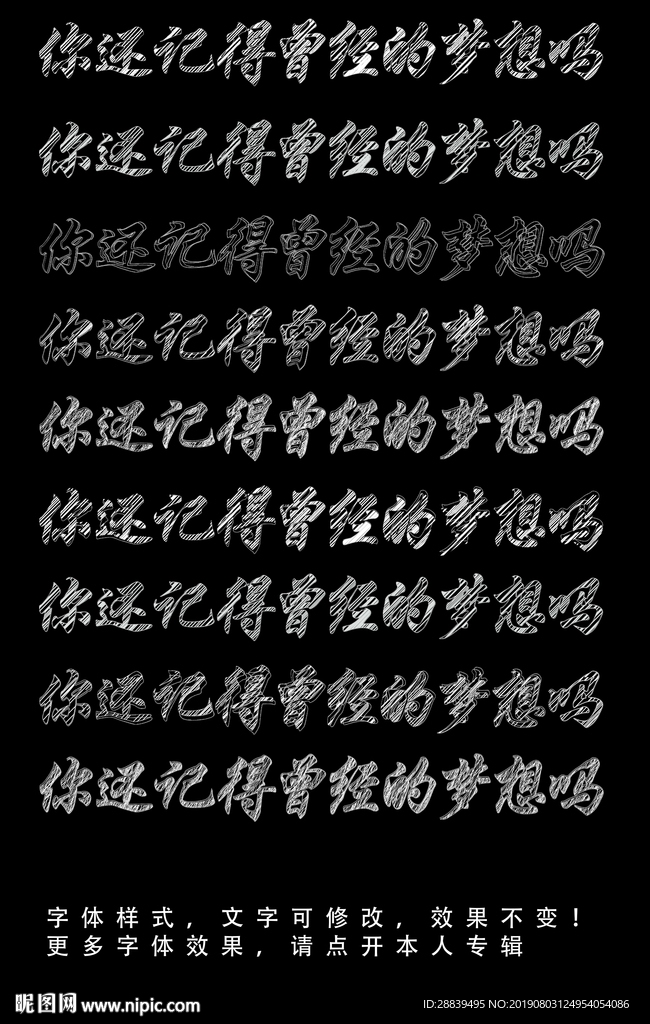 你还记得曾经的梦想吗
你还记得曾经的梦想吗
你还记得曾经的梦想吗
你还记得曾经的梦想吗
你还记得曾经的梦想吗
你还记得曾经的梦想吗
你还记得曾经的梦想吗
你还记得曾经的梦想吗
你还记得曾经的梦想吗
字体样式，文字可修改，效果不变！
更多字体效果，请点开本人专辑
昵图网 www.nipic.com
ID:28839495 NO:20190803124954054086